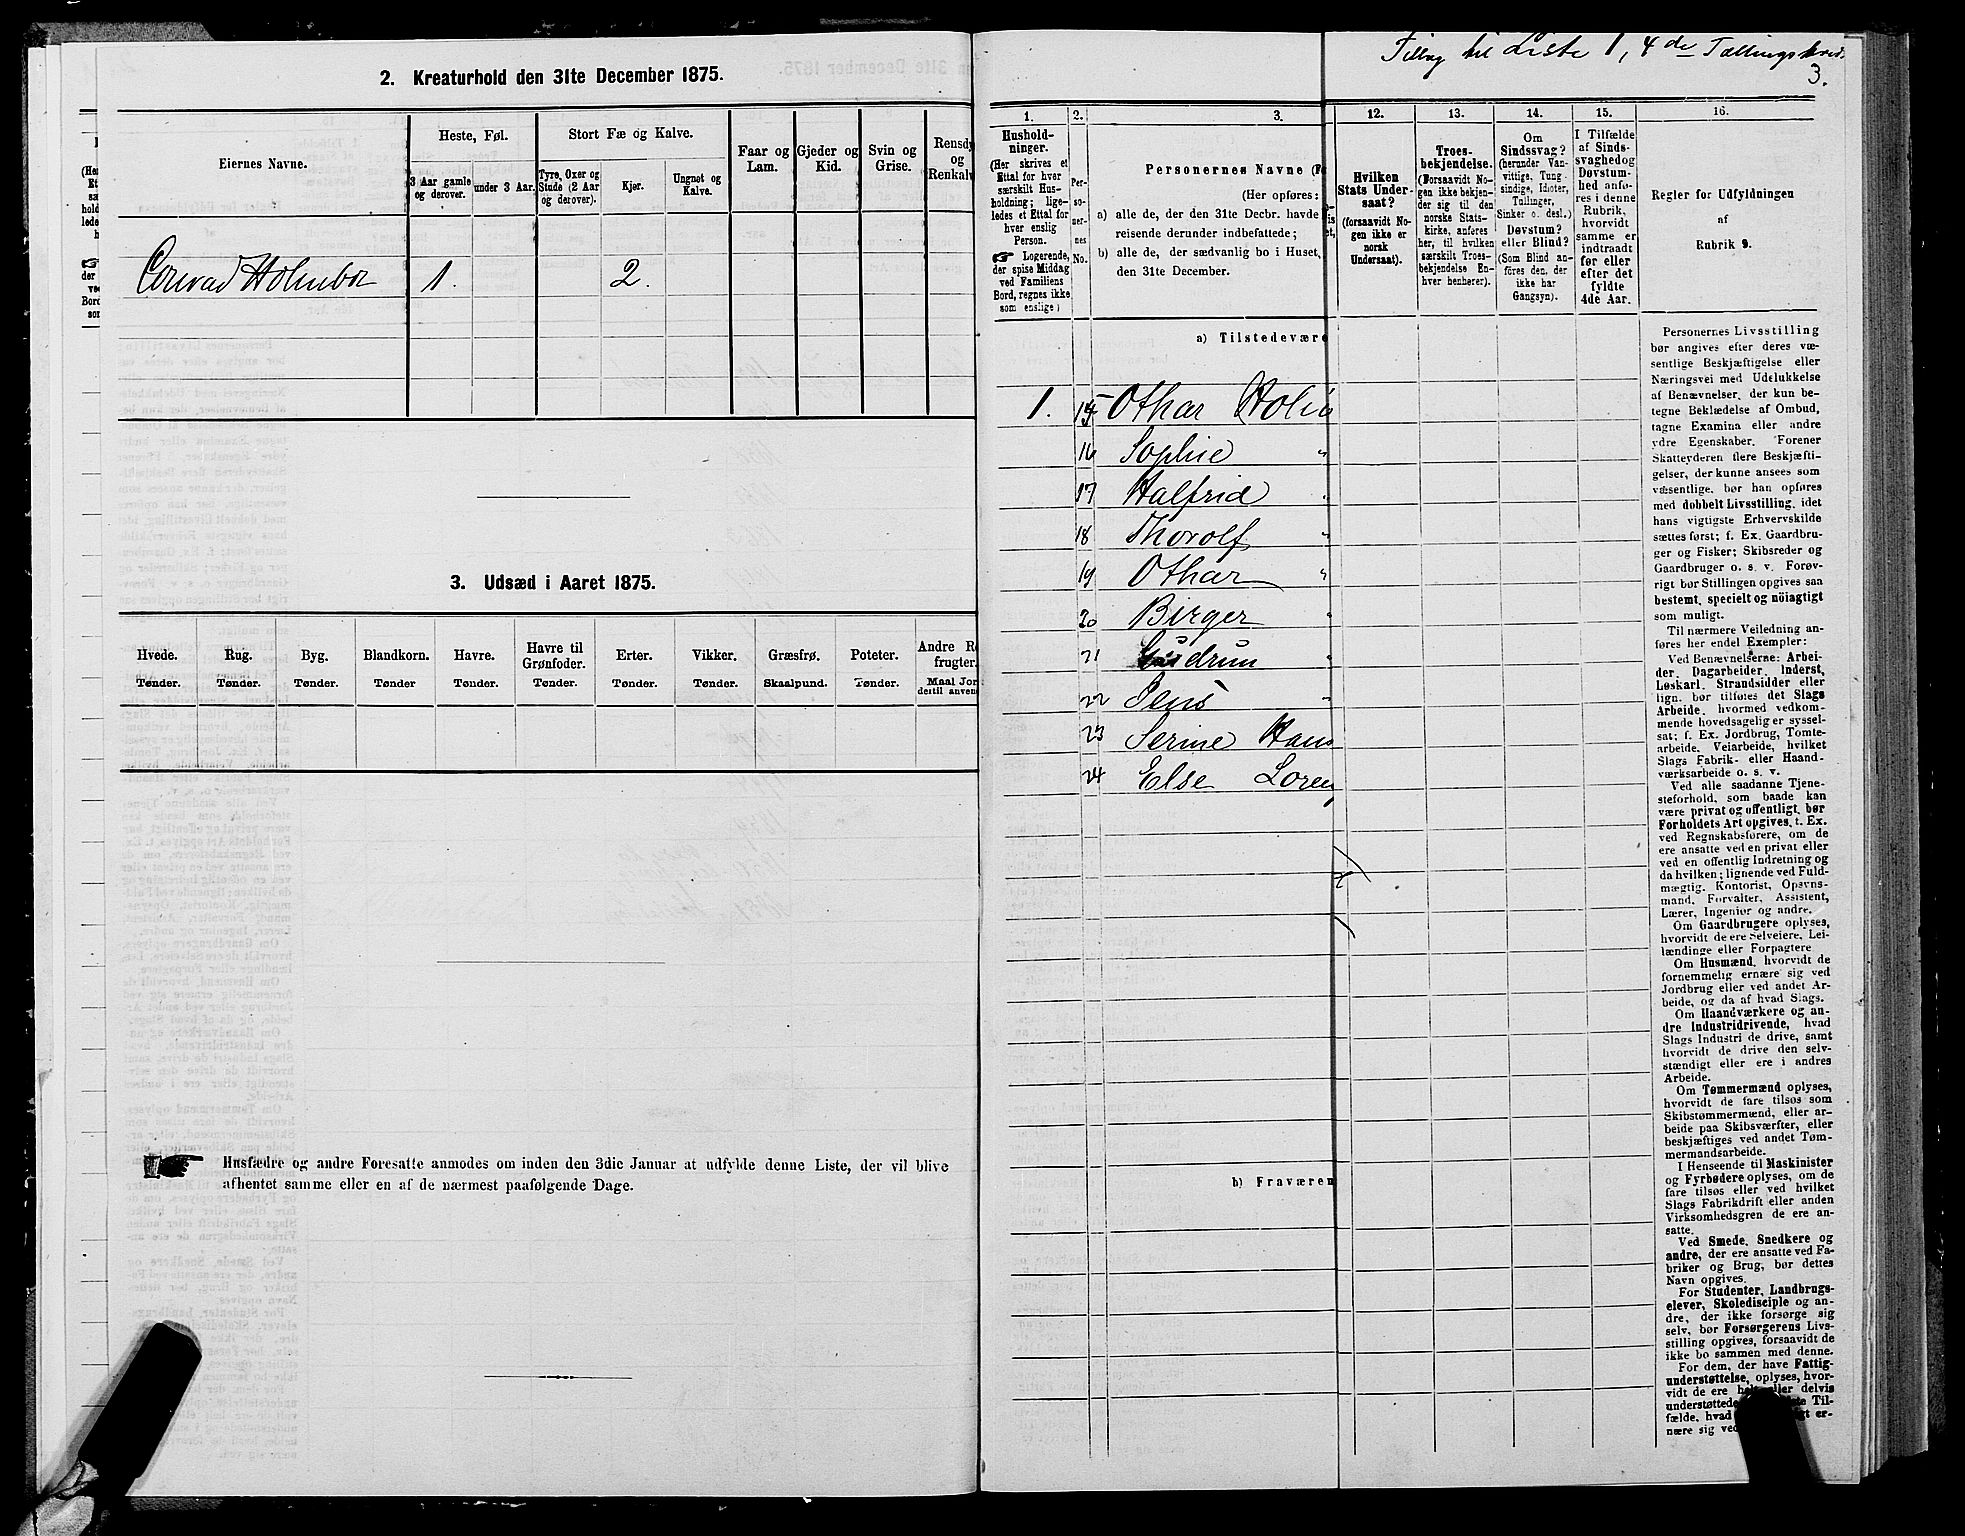 2. Kreaturhold den 31te December 1875.
Eiernes Navne.
Heste, Føl.
Stort Fæ og Kalve.
Faar og Lam.
Gjeder og Kid.
Svin og Grise.
Rensdy
og
Renkalv
3 Aar gamle og derover.
under 3 Aar.
Tyre, Oxer og Stude (2 Aar og derover).
Kjør.
Ungnøt og Kalve.
Conrad Holmboe 1. 2.
3. Udsæd i Aaret 1875.
Hvede. Rug. Byg. Blandkorn. Havre. Havre til Grønfoder. Erter. Vikker. Græsfrø. Poteter. Andre Ro
frugter.
Tønder. Tønder. Tønder. Tønder Tønder. Tønder. Tønder. Tønder. Skaalpund. Tønder. Maal Jor
destil anven
Husfædre og andre Foresatte anmodes om inden den 3die Januar at udfylde denne Liste, der vil blive
afhentet samme eller en af de nærmest paafølgende Dage.
Tillæg til Liste 1, 4de Tællingskreds
3.
1.
Hushold-
ninger.
(Her skrives et
Ettal for hver
særskilt Hus-
holdning; lige-
ledes et Ettal for
hver enslig
Person.
Logerende,
der spise Middag
ved Familiens
Bord, regnes ikke
som enslige)
2.
Per-
so-
ner-
nes
No.
3.
Personernes Navne (F
(Her opføres:
a) alle de, der den 31te Decbr. havde
reisende derunder indbefattede;
b) alle de, der sædvanlig bo i Huset,
den 31te December.
12.
Hvilken
Stats Under-
saat?
(forsaavidt No-
gen ikke er
norsk
Undersaat).
13.
Troes-
bekjendelse.
(Forsaavidt No-
gen ikke bekjen-
der sig til den
norske Stats-
kirke, anføres
her, til hvilken
særskilt Troes-
bekjendelse En-
hver henhører).
14.
Om
Sindssvag?
(herunder Van-
vittige, Tung-
sindige, Idioter,
Tullinger,
Sinker o. desl.)
Døvstum?
eller Blind?
(Som Blind an-
føres den, der
ikke har
Gangsyn).
15.
I Tilfælde
af Sinds-
svaghed og
Døvstum-
hed anfø-
res i denne
Rubrik,
hvorvidt
samme er
indtraadt
før eller
efter det
fyldte
4de Aar.
16.
Regler for Udfyldningen
af
Rubrik 9.
a) Tilstedevære
1. 15 Othar Holm
16 Sophie "
17 Halfrid "
18 Thorolf "
19 Othar "
20 Birger "
21 Gudrun "
22 Jens "
23 Serine Hans
24 Else Loren
b) Fraværen
Personernes Livsstilling
bør angives efter deres væ-
sentlige Beskjæftigelse eller
Næringsvei med Udelukkelse
af Benævnelser, der kun be-
tegne Beklædelse af Ombud,
tagne Examina eller andre
ydre Egenskaber. Forener
Skatteyderen flere Beskjæfti-
gelser, der kunne ansees som
væsentlige, bør han opføres
med dobbelt Livsstilling, idet
hans vigtigste Erhvervskilde
sættes først; f. Ex. Gaardbru-
ger og Fisker; Skibsreder og
Gaardbruger o. s. v. Forøv-
rigt bør Stillingen opgives saa
bestemt, specielt og nøiagtigt
som muligt.
Til nærmere Veiledning an-
føres her endel Exempler:
Ved Benævnelserne: Arbei-
der, Dagarbeider, Inderst,
Løskarl, Strandsidder eller
lign. bør tilføies det Slags
Arbeide, hvormed vedkom-
mende hovedsagelig er syssel-
sat; f. Ex. Jordbrug, Tomte-
arbeide, Veiarbeide, hvilket
Slags Fabrik- eller Haand-
værksarbeide o. s. v.
Ved alle saadanne Tjene-
steforhold, som baade kan
være privat og offentligt, bør
Forholdets Art opgives, t. Ex.
ved Regnskabsførere, om de
ere ansatte ved en privat eller
ved en offentlig Indretning og
da hvilken; lignende ved Fuld-
mægtig, Kontorist, Opsyns-
mand, Forvalter, Assistent,
Lærer, Ingeniør og andre.
Om Gaardbrugere oplyses,
hvorvidt de ere Selveiere, Lei-
lændinge eller Forpagtere
Om Husmænd, hvorvidt de
fornemmelig ernære sig ved
Jordbrug eller ved andet Ar-
beide, og da af hvad Slags.
Om Haandværkere og an-
dre Industridrivende, hvad
Slags Industri de drive, samt
hvorvidt de drive den selv-
stændigt eller ere i andres
Arbeide.
Om Tømmermænd oplyses,
hvorvidt de fare tilsøs som
Skibstømmermænd, eller ar-
beide paa Skibsværfter, eller
beskjæftiges ved andet Tøm-
mermandsarbeide.
I Henseende til Maskinister
og Fyrbødere oplyses, om de
fare tilsøs eller ved hvilket
Slags Fabrikdrift eller anden
Virksomhedsgren de ere an-
satte.
Ved Smede, Snedkere og
andre, der ere ansatte ved Fa-
briker og Brug, bør dettes
Navn opgives.
For Studenter, Landbrugs-
elever, Skoledisciple og an-
dre, der ikke forsørge sig
selv, bør Forsørgerens Livs-
stilling opgives, forsaavidt de
ikke bo sammen med denne.
For dem, der have Fattig-
understøttelse, oplyses, hvor-
vidt de ere helt eller delvis
understøttede Til-
fælde, hvad er-
nære sig ved